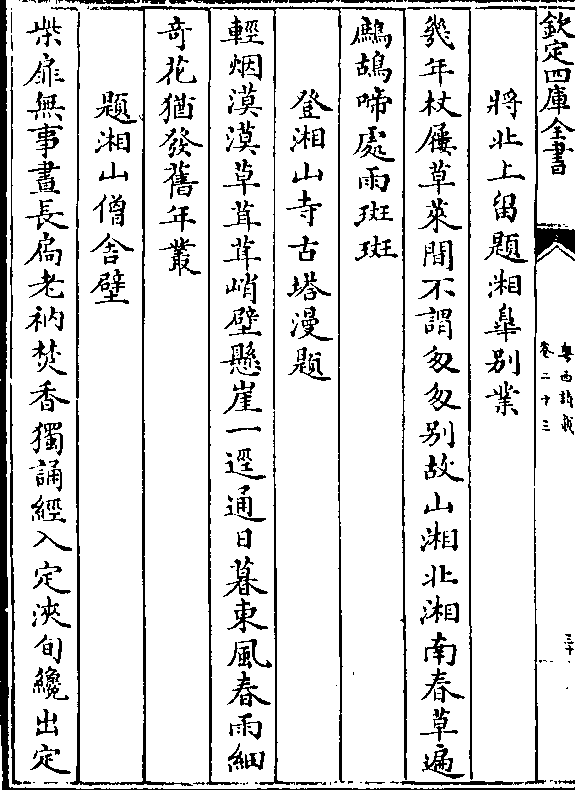 欽定四庫全書
粤西詩載
卷二十三
三十
將北上留題湘臯別業
幾年杖屨草萊間不謂匆匆別故山湘北湘南春草遍
鷓鴣啼處雨斑斑
登湘山寺古塔漫題
輕烟漠漠草茸茸峭壁懸崖一逕通日暮東風春雨細
奇花猶發舊年叢
題湘山僧舍壁
柴扉無事晝長扃老衲焚香獨誦經入定浹旬纔出定